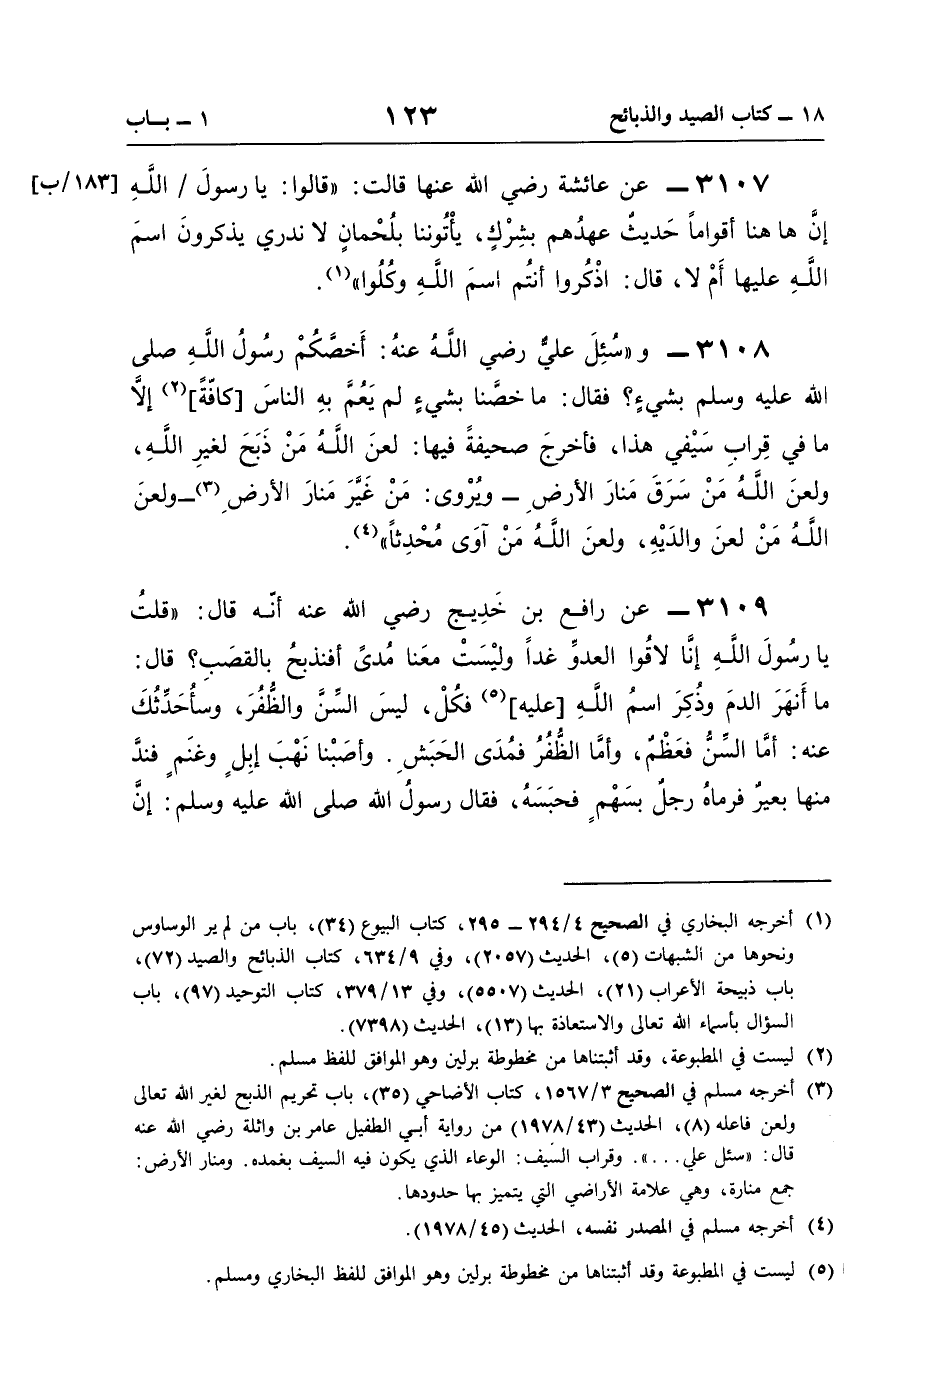 ١٨ ــ كتاب الصيد والذبائح ١٢٣ ١ ــ بــاب
٣١٠٧ ــ عن عائشة رضي الله عنها قالت: «قالوا: يا رسولَ / اللَّهِ [١٨٣/ب]
إنَّ ها هنا أقواماً حَديثٌ عهدُهم بشِرْكٍ، يأْتُوننا بلُحْمانٍ لا ندري يذكرونَ اسمَ
اللَّهِ عليها أَمْ لا، قال: اذْكُروا أنتُم اسمَ اللَّهِ وكُلُوا»(١).
٣١٠٨ ــ و «سُئِلَ عليٌّ رضي اللَّهُ عنهُ: أَخصَّكُمْ رسُولُ اللَّهِ صلى
الله عليه وسلم بشيءٍ؟ فقال: ما خصَّنا بشيءٍ لم يَعُمَّ بهِ الناسَ [كافّةً](٢) إلَّا
ما في قِرابِ سَيْفي هذا، فأخرجَ صحيفةً فيها: لعنَ اللَّهُ مَنْ ذَبَحَ لغيرِ اللَّهِ،
ولعنَ اللَّهُ مَنْ سَرَقَ مَنارَ الأرضِ ــ ويُرْوى: مَنْ غَيَّرَ مَنارَ الأرضِ(٣)ــ ولعنَ
اللَّهُ مَنْ لعنَ والدَيْهِ، ولعنَ اللَّهُ مَنْ آوَى مُحْدِثاً»(٤).
٣١٠٩ ــ عن رافع بن خَدِيج رضي الله عنه أنّه قال: «قلتُ
يا رسُولَ اللَّهِ إنَّا لاقُوا العدوِّ غداً وليْسَتْ معَنا مُدىً أفنذبحُ بالقصَبِ؟ قال:
ما أَنهَرَ الدمَ وذُكِرَ اسمُ اللَّهِ [عليه](٥) فكُلْ، ليسَ السِّنَّ والظُّفُرَ، وسأُحَدِّثُكَ
عنه: أمَّا السِّنُّ فعَظْمٌ، وأمَّا الظُّفُرُ فمُدَى الحَبَشِ. وأصَبْنا نَهْبَ إبِلٍ وغنَمٍ فندَّ
منها بعيرٌ فرماهُ رجلٌ بسَهْمٍ فحبَسَهُ، فقال رسولُ الله صلى الله عليه وسلم: إنَّ
(١) أخرجه البخاري في الصحيح ٢٩٤/٤ ــ ٢٩٥، كتاب البيوع (٣٤)، باب من لم ير الوساوس
ونحوها من الشبهات (٥)، الحديث (٢٠٥٧)، وفي ٦٣٤/٩، كتاب الذبائح والصيد (٧٢)،
باب ذبيحة الأعراب (٢١)، الحديث (٥٥٠٧)، وفي ٣٧٩/١٣، كتاب التوحيد (٩٧)، باب
السؤال بأسماء الله تعالى والاستعاذة بها (١٣)، الحديث (٧٣٩٨).
(٢) ليست في المطبوعة، وقد أثبتناها من مخطوطة برلين وهو الموافق للفظ مسلم.
(٣) أخرجه مسلم في الصحيح ١٥٦٧/٣، كتاب الأضاحي (٣٥)، باب تحريم الذبح لغير الله تعالى
ولعن فاعله (٨)، الحديث (١٩٧٨/٤٣) من رواية أبي الطفيل عامر بن واثلة رضي الله عنه
قال: «سئل علي...». وقراب السَيف: الوعاء الذي يكون فيه السيف بغمده. ومنار الأرض:
جمع منارة، وهي علامة الأراضي التي يتميز بها حدودها.
(٤) أخرجه مسلم في المصدر نفسه، الحديث (١٩٧٨/٤٥).
(٥) ليست في المطبوعة وقد أثبتناها من مخطوطة برلين وهو الموافق للفظ البخاري ومسلم.